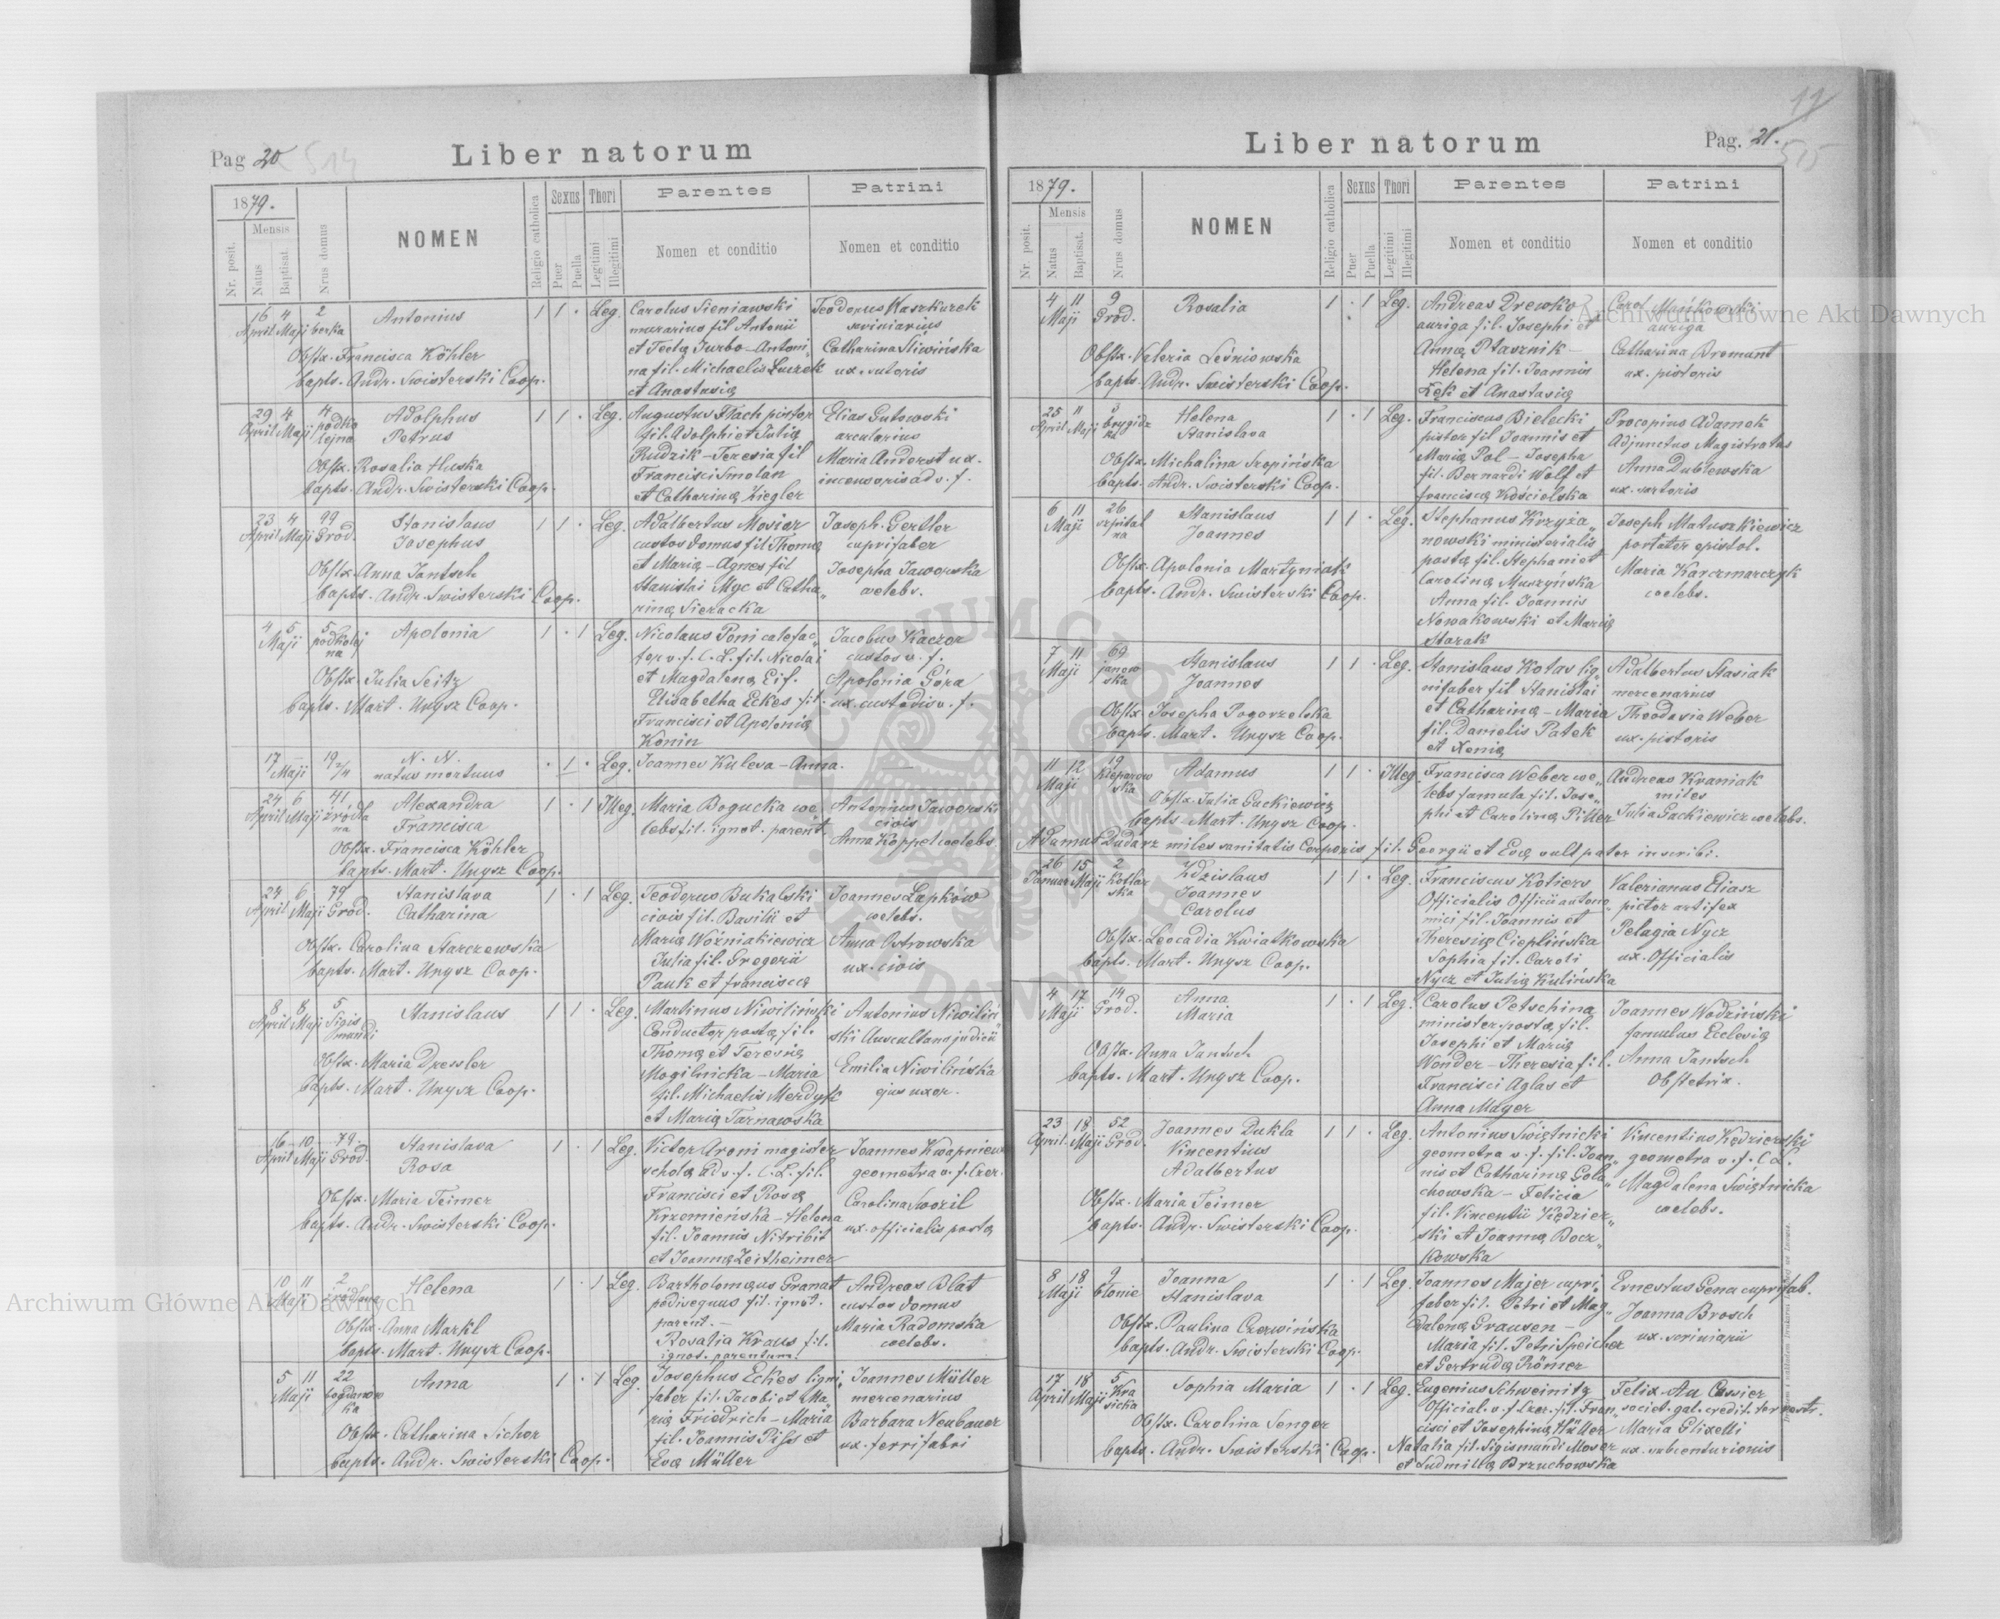 11
Pag 20
514
Liber natorum
1879.
Mensis
Nr. posit.
Natus
Baptisat.
Nrus domus
NOMEN
Religio catholica
Sexus
Puer
Puella
Thori
Legitimi
Illegitimi
Parentes
Nomen et conditio
Patrini
Nomen et conditio
16 4 2 Antonius 1 1 · Leg. Carolus Sieniawski Teodorus Waszkurek
April Maji murarius fil Antonii
et Teclą Turbo – Antoni„ Catharina Śliwińska
Obstx. Francisca Köhler na fil. Michaelis Luczek ux. sutoris
bapts. Andr. Swisterski Coop. et Anastasią
29 4 4 Adolphus 1 1 · Leg. Augustus Flach pistor Elias Gutowski
April Maji Petrus fil. Adolphi et Julią arcularius
Obstx. Rosalia Huska Rudzik – Teresia fil Maria Anderst ux.
bapts. Andr. Swisterski Coop. Francisci Smolan
et Cathariną Ziegler
23 4 99 Stanislaus 1 1 · Leg. Adalbertus Mosior Joseph. Gertler
April Maji Grod. Josephus custos domus fil Thomą cuprifaber
Obstx. Anna Jantsch et Marią – Agnes fil Josepha Jaworska
bapts. Andr. Swisterski Coop. Stanislai Myc et Catha„ coelebs.
riną Sieracka
4 5 5 Apolonia 1 · 1 Leg. Nicolaus Poni calefac„ Jacobus Kaczor
Maji podkolej tor v. f. C. L. fil. Nicolai custos v. f.
na et Magdaleną Eif. Apolonia Góra
Obstx. Julia Seitz Elisabetha Eckes fil. ux. custodis v. f.
bapts. Mart. Unysz Coop. Francisci et Apolonią
Konin
17 – 19 2/4 N. N. · 1 · Leg. Joannes Kuleva – Anna. —
Maji natus mortuus
24 6 41 Alexandra 1 · 1 Illeg. Maria Bogucka coe„ Antonius Jaworski
April Maji źródla Francisca lebs fil. ignot. parent. civis
na Anna Köppel coelebs.
Obstx. Francisca Köhler
bapts. Mart. Unysz Coop.
24 6 79 Stanislava 1 · 1 Leg. Teodorus Bukalski Joannes Lapków
April Maji Grod. Catharina civis fil. Basilii et coelebs.
Obstx. Carolina Starczewska Marią Woźniakiewicz Anna Ostrowska
bapts. Mart. Unysz Coop. Julia fil. Gregorii ux. civis
Pauk et franciscą
8 8 5 Stanislaus 1 1 · Leg. Martinus Niwiliński Antonius Niwiliń
April Maji Sigis Conductor postą fil. ski Auscultans judicii
mundi Thomą et Teresią
Obstx. Maria Dressler Mogilnicka – Maria Emilia Niwilińska
bapts. Mart. Unysz Coop. fil. Michaelis Merdysk ejus uxor.
et Marią Tarnawska
16 10 79. Stanislava 1 · 1 Leg. Victor Aroni magister Joannes Kwapniew
April Maji Grod. Rosa scholą ad v. f. C. L. fil. geometra v. f. Czer.
Obstx. Maria Teimer Francisci et Rosą Carolina Swozil
bapts. Andr. Swisterski Coop. Krzemieńska – Helena ux. officialis postą
fil. Joannis Nitribit
et Joanną Zeitheimer
10 11 2 Helena 1 · 1 Leg. Bartholomąus Granat Andreas Blat
Maji pedisequus fil. ignot. custos domus
Obstx. Anna Markl parent. – Maria Radomska
bapts. Mart. Unysz Coop. Rosalia Kraus fil. coelebs.
ignot. parentum.
5 11 22 Anna 1 · 1 Leg. Josephus Eckes ligni„ Joannes Müller
Maji bogdanow faber fil. Jacobi et Ma„ mercenarius
ka rią Friedrich – Maria Barbara Neubauer
Obstx. Catharina Sichor fil. Joannis Piss et ux. ferrifabri
bapts. Andr. Swisterski Coop. Evą Müller
Liber natorum
Pag. 21.
515
1879.
Mensis
Nr. posit.
Natus
Baptisat.
Nrus domus
NOMEN
Religio catholica
Sexus
Puer
Puella
Thori
Legitimi
Illegitimi
Parentes
Nomen et conditio
Patrini
Nomen et conditio
4 11 9 Rosalia 1 · 1 Leg. Andreas Drewko Carol Mańkowski
Maji Grod. auriga fil. Josephi et auriga
Obstx. Valeria Leśniowska Anną Ptasznik – Catharina Dremant
bapts. Andr. Swisterski Coop. Helena fil. Joannis ux. pistoris
Lęk et Anastasią
25 11 Helena 1 · 1 Leg. Franciscus Bielecki Procopius Adamek
April Maji brygidz Stanislava pistor fil Joannis et Adjunctus Magistratus
ka Marią Pol – Josepha Anna Dublewska
Obstx. Michalina Szopińska fil. Bernardi Wolf et ux. sartoris
bapts. Andr. Swisterski Coop. franciscą Kościelska
6 11 26 Stanislaus 1 1 · Leg. Stephanus Krzyża„ Joseph Matuszkiewicz
Maji szpital Joannes nowski ministerialis portator epistol.
na postą fil. Stephani et
Obstx. Apolonia Martyniak Caroliną Muszyńska Maria Karczmarczyk
bapts. Andr. Swisterski Coop. Anna fil. Joannis coelebs.
Nowakowski et Marią
Starak
7 11 69 Stanislaus 1 1 · Leg. Stanislaus Kotas lig„ Adalbertus Stasiak
Maji janow Joannes nifaber fil Stanislai mercenarius
ska et Catharina – Maria Theodosia Weber
Obstx. Josepha Pogorzelska fil. Danielis Patek ux. pistoris
bapts. Mart. Unysz Coop. et Xenią
11 12 19 Adamus 1 1 · Illeg. Francisca Weber coe„ Andreas Kraniak
Maji kleparow lebs famula fil. Jose„ miles
ska phi et Caroliną Pitter Julia Gackiewicz coelebs.
Obstx. Julia Gackiewicz
bapts. Mart. Unysz Coop.
Adamus Dudarz miles sanitatis Corporis fil. Georgii et Evą vult pater inscribi.
26 15 2 Zdzislaus 1 1 · Leg. Franciscus Kotiers Valerianus Eliasz
Januar Maji Kotlar Joannes Officialis Officii autono„ pictor artifex
ska Carolus mici fil. Joannis et Pelagia Nycz
Obstx. Leocadia Kwiatkowska Theresią Cieplińska ux. Officialis
bapts. Mart. Unysz Coop. Sophia fil. Caroli
Nycz et Julią Kulińska
4 17 14 Anna 1 · 1 Leg. Carolus Petschina Joannes Wodziński
Maji Grod. Maria minister postą fil. famulus Ecclesią
Josephi et Marią
Obstx. Anna Jantsch Wonder – Theresia fil. Anna Jantsch
bapts. Mart. Unysz Coop. Francisci Aglas et Obstetrix.
Anna Mayer
23 18 52 Joannes Dukla 1 1 · Leg. Antonius Swiętnicki Vincentius Kędzierski
April Maji Grod. Vincentius geometra v. f. fil. Joan„ geometra v. f. C. L.
Adalbertus nis et Catharină Gola„ Magdalena Swiętnicka
Obstx. Maria Teimer chowska – Felicia coelebs.
bapts. Andr. Swisterski Coop. fil. Vincentii Kędzier„
ski et Joanną Bocz„
kowska
8 18 9 Joanna 1 · 1 Leg. Joannes Majer cupri„ Ernestus Gena cuprifab.
Maji błonie Stanislava faber fil. Petri et Mag„ Joanna Brosch
Obstx. Paulina Czerwińska daleną Grausen – ux. scriniarii
bapts. Andr. Swisterski Coop. Maria fil. Petri Speicher
et Gertrudą Römer
17 18 5 Sophia Maria 1 · 1 Leg. Eugenius Schweinitz Felix Au Cassier
April Maji Kra Official. v. f. Czer. fil. Fran„ societ. gal. credit. terrestr.
sicka cisci et Josephiną Hüller Maria Elixelli
Obstx. Carolina Senger Natalia fil. Sigismundi Moser ux. subcenturionis
bapts. Andr. Swisterski Coop. et Ludmillą Brzuchowska
Archiwum Główne Akt Dawnych
Archiwum Główne Akt Dawnych
ARCHIWUM GŁÓWNE AKT DAWNYCH